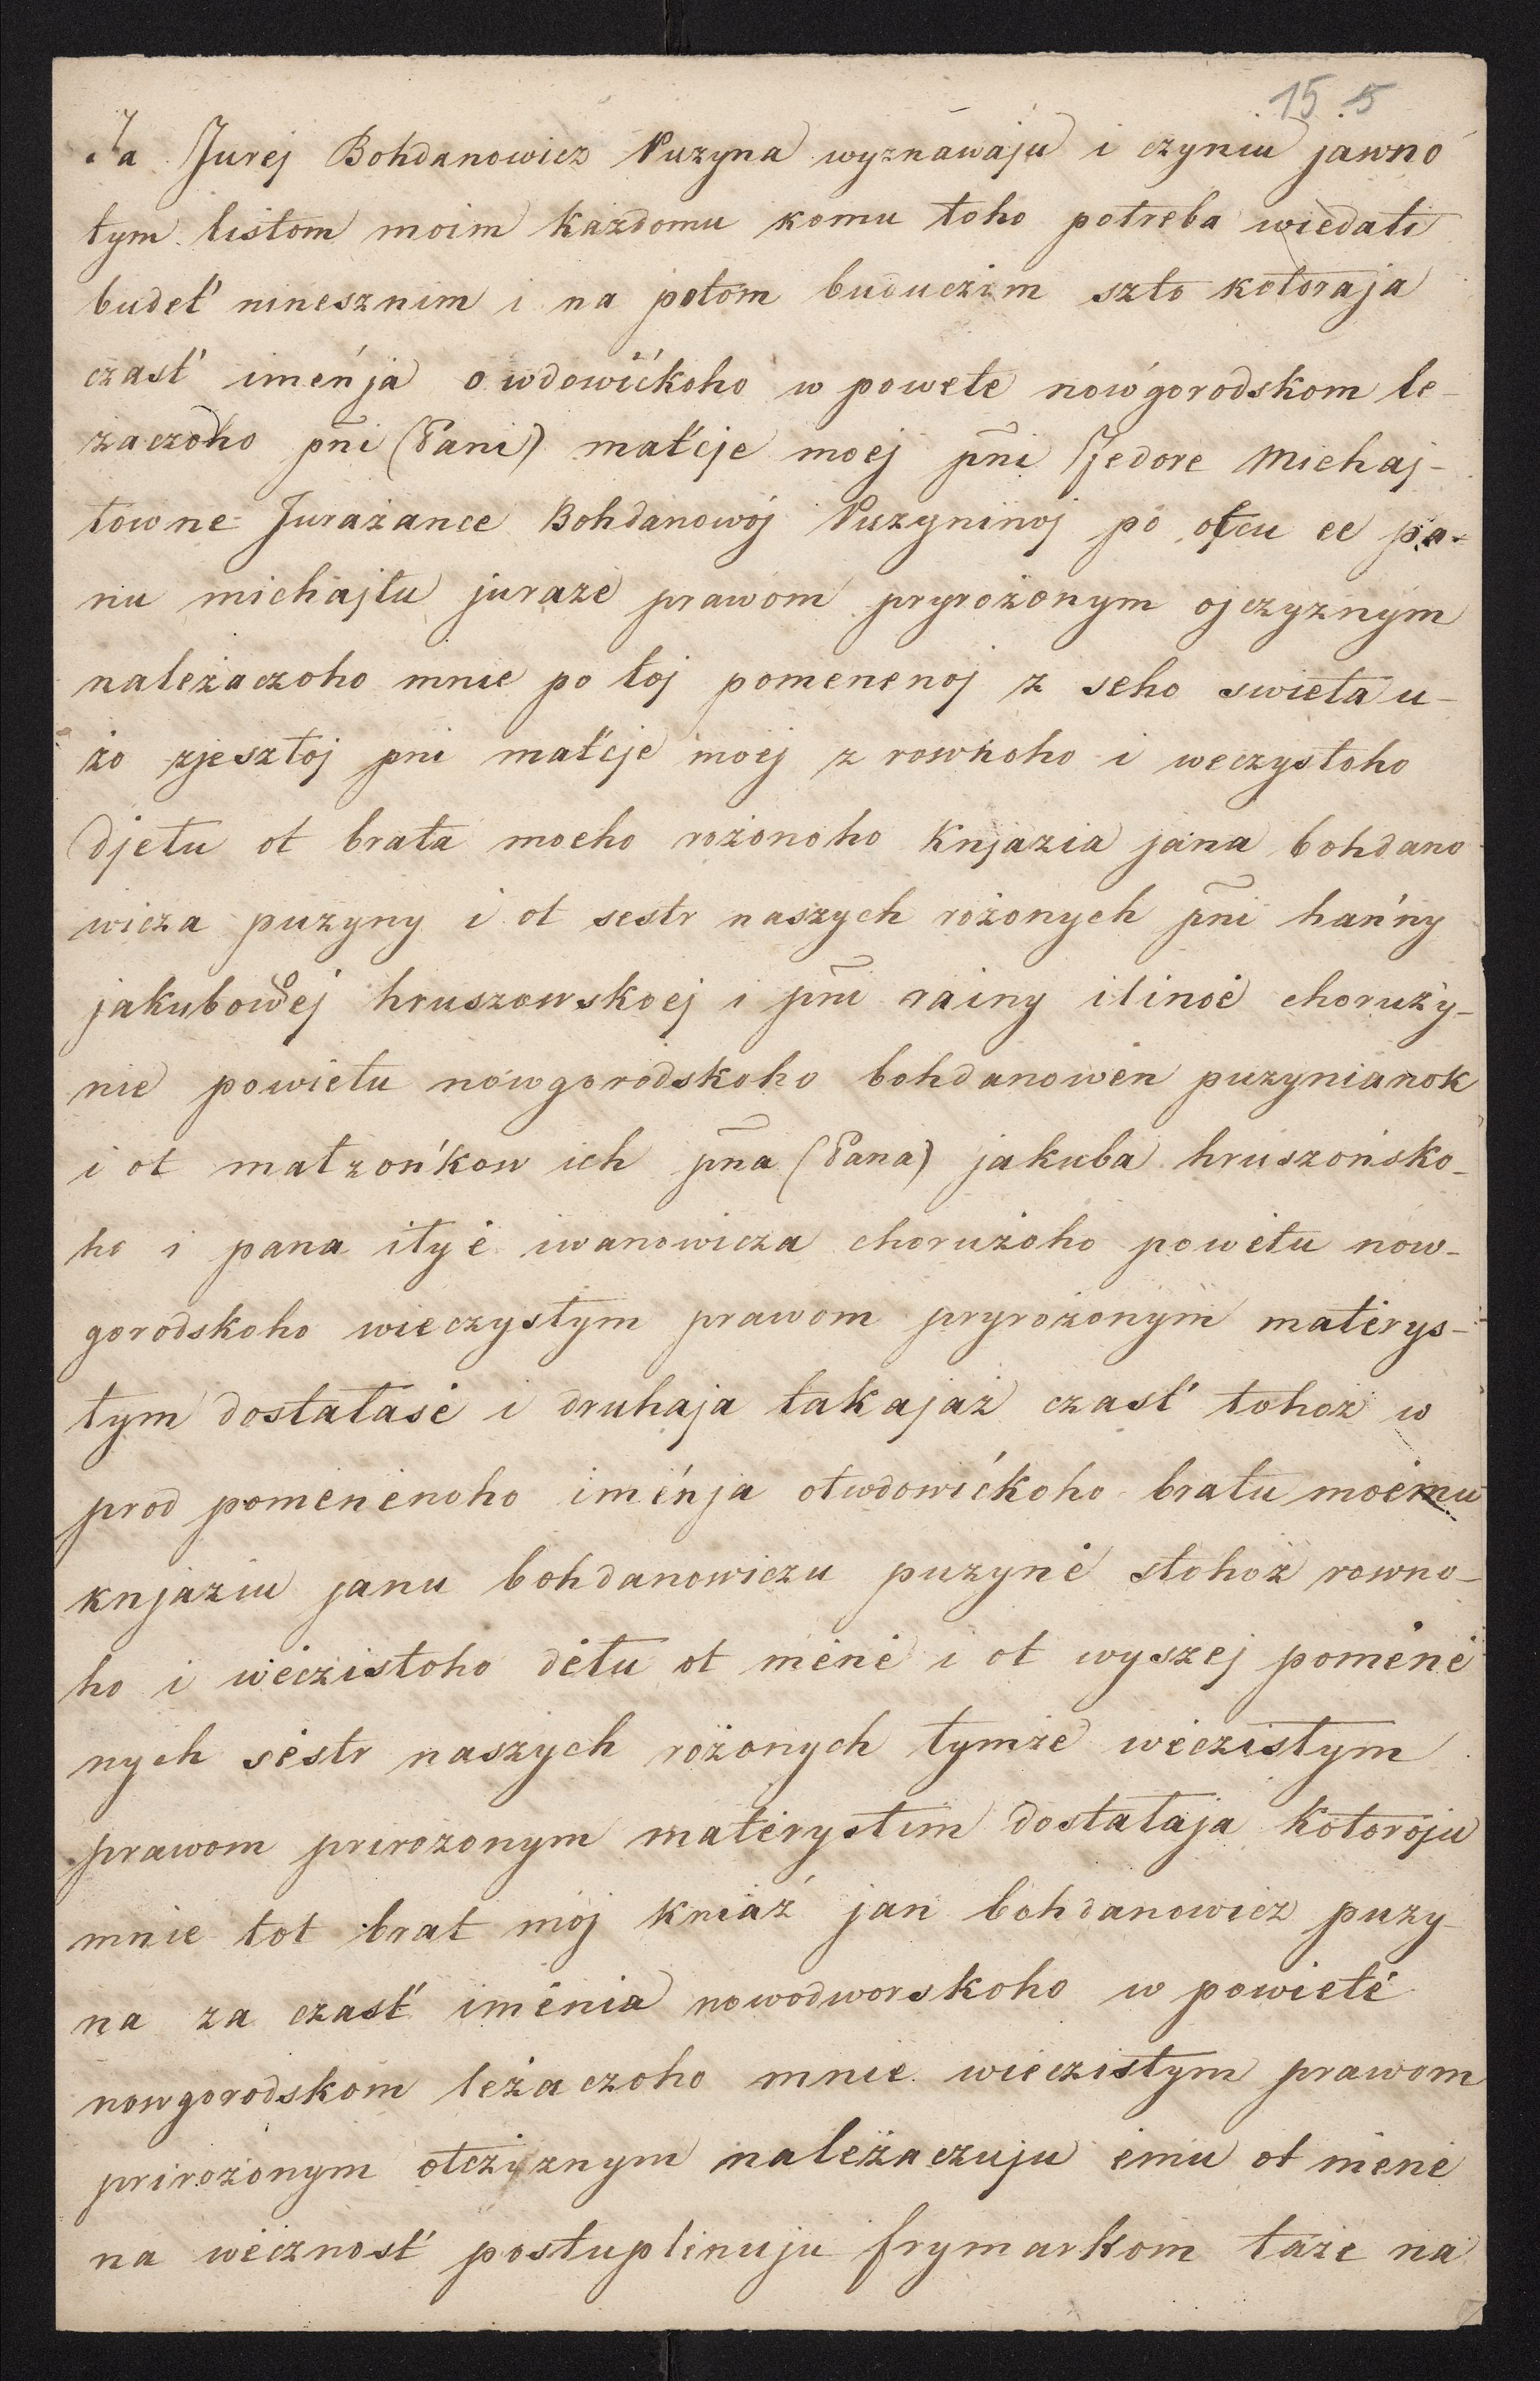 15.5
Ja Jurej Bohdanowicz Puzyna wyznawaju i czyniu jawno
tym listom moim każdomu komu toho potreba wiedati
budet' ninesznim i na potom buduczim szto kotoraja
czast' imen'ja owdowićkoho w powete nowgorodskom le-
żaczoho pñi (Pani) mat'cje moej pñi Fedore Michaj-
łowne Jurażance Bohdanowoj Puzyninoj po otcu ee pa-
nu michajłu juraże prawom pryrożonym ojczyznym
należaczoho mnie po toj pomenenoj z seho swieta u-
żo zjesztoj pni mat'cje moej z rownoho i weczystoho
djełu ot brata moeho rożonoho Knjazia jana bohdano-
wicza puzyny i ot sestr naszych rożonych pñi han'ny
jakubowoej hruszowskoej i pñi rainy ilinoė choruży-
nie powietu nowgorodskoho bohdanowen puzynianok
i ot małżon'kow ich pña (Pana) jakuba hruszowsko-
ho i pana ilyė iwanowicza chorużoho powėtu now-
gorodskoho wieczystym prawom pryrożonym matėrys-
tym dostałasė i druhaja takajaż czast' tohoż w
prod pomėnėnoho imėn'ja otwdowićkoho bratu moėmu
knjaziu janu bohdanowiczu puzynė stohoż rowno-
ho i wėczistoho dėłu ot mėnė i ot wyszej pomėnė
nych sėstr naszych rożonych tymże wėczistym
prawom prirożonym matėrystim dostałaja kotoroju
mnie tot brat moj kniaź jan bohdanowicz puzy-
na za czast' imėnia nowodworskoho w powietė
nowgorodskom leżaczoho mnie wieczistym prawom
prirożonym otczyznym należaczuju ėmu ot mėnė
na wėcznost' postuplinuju frymarkom taże na